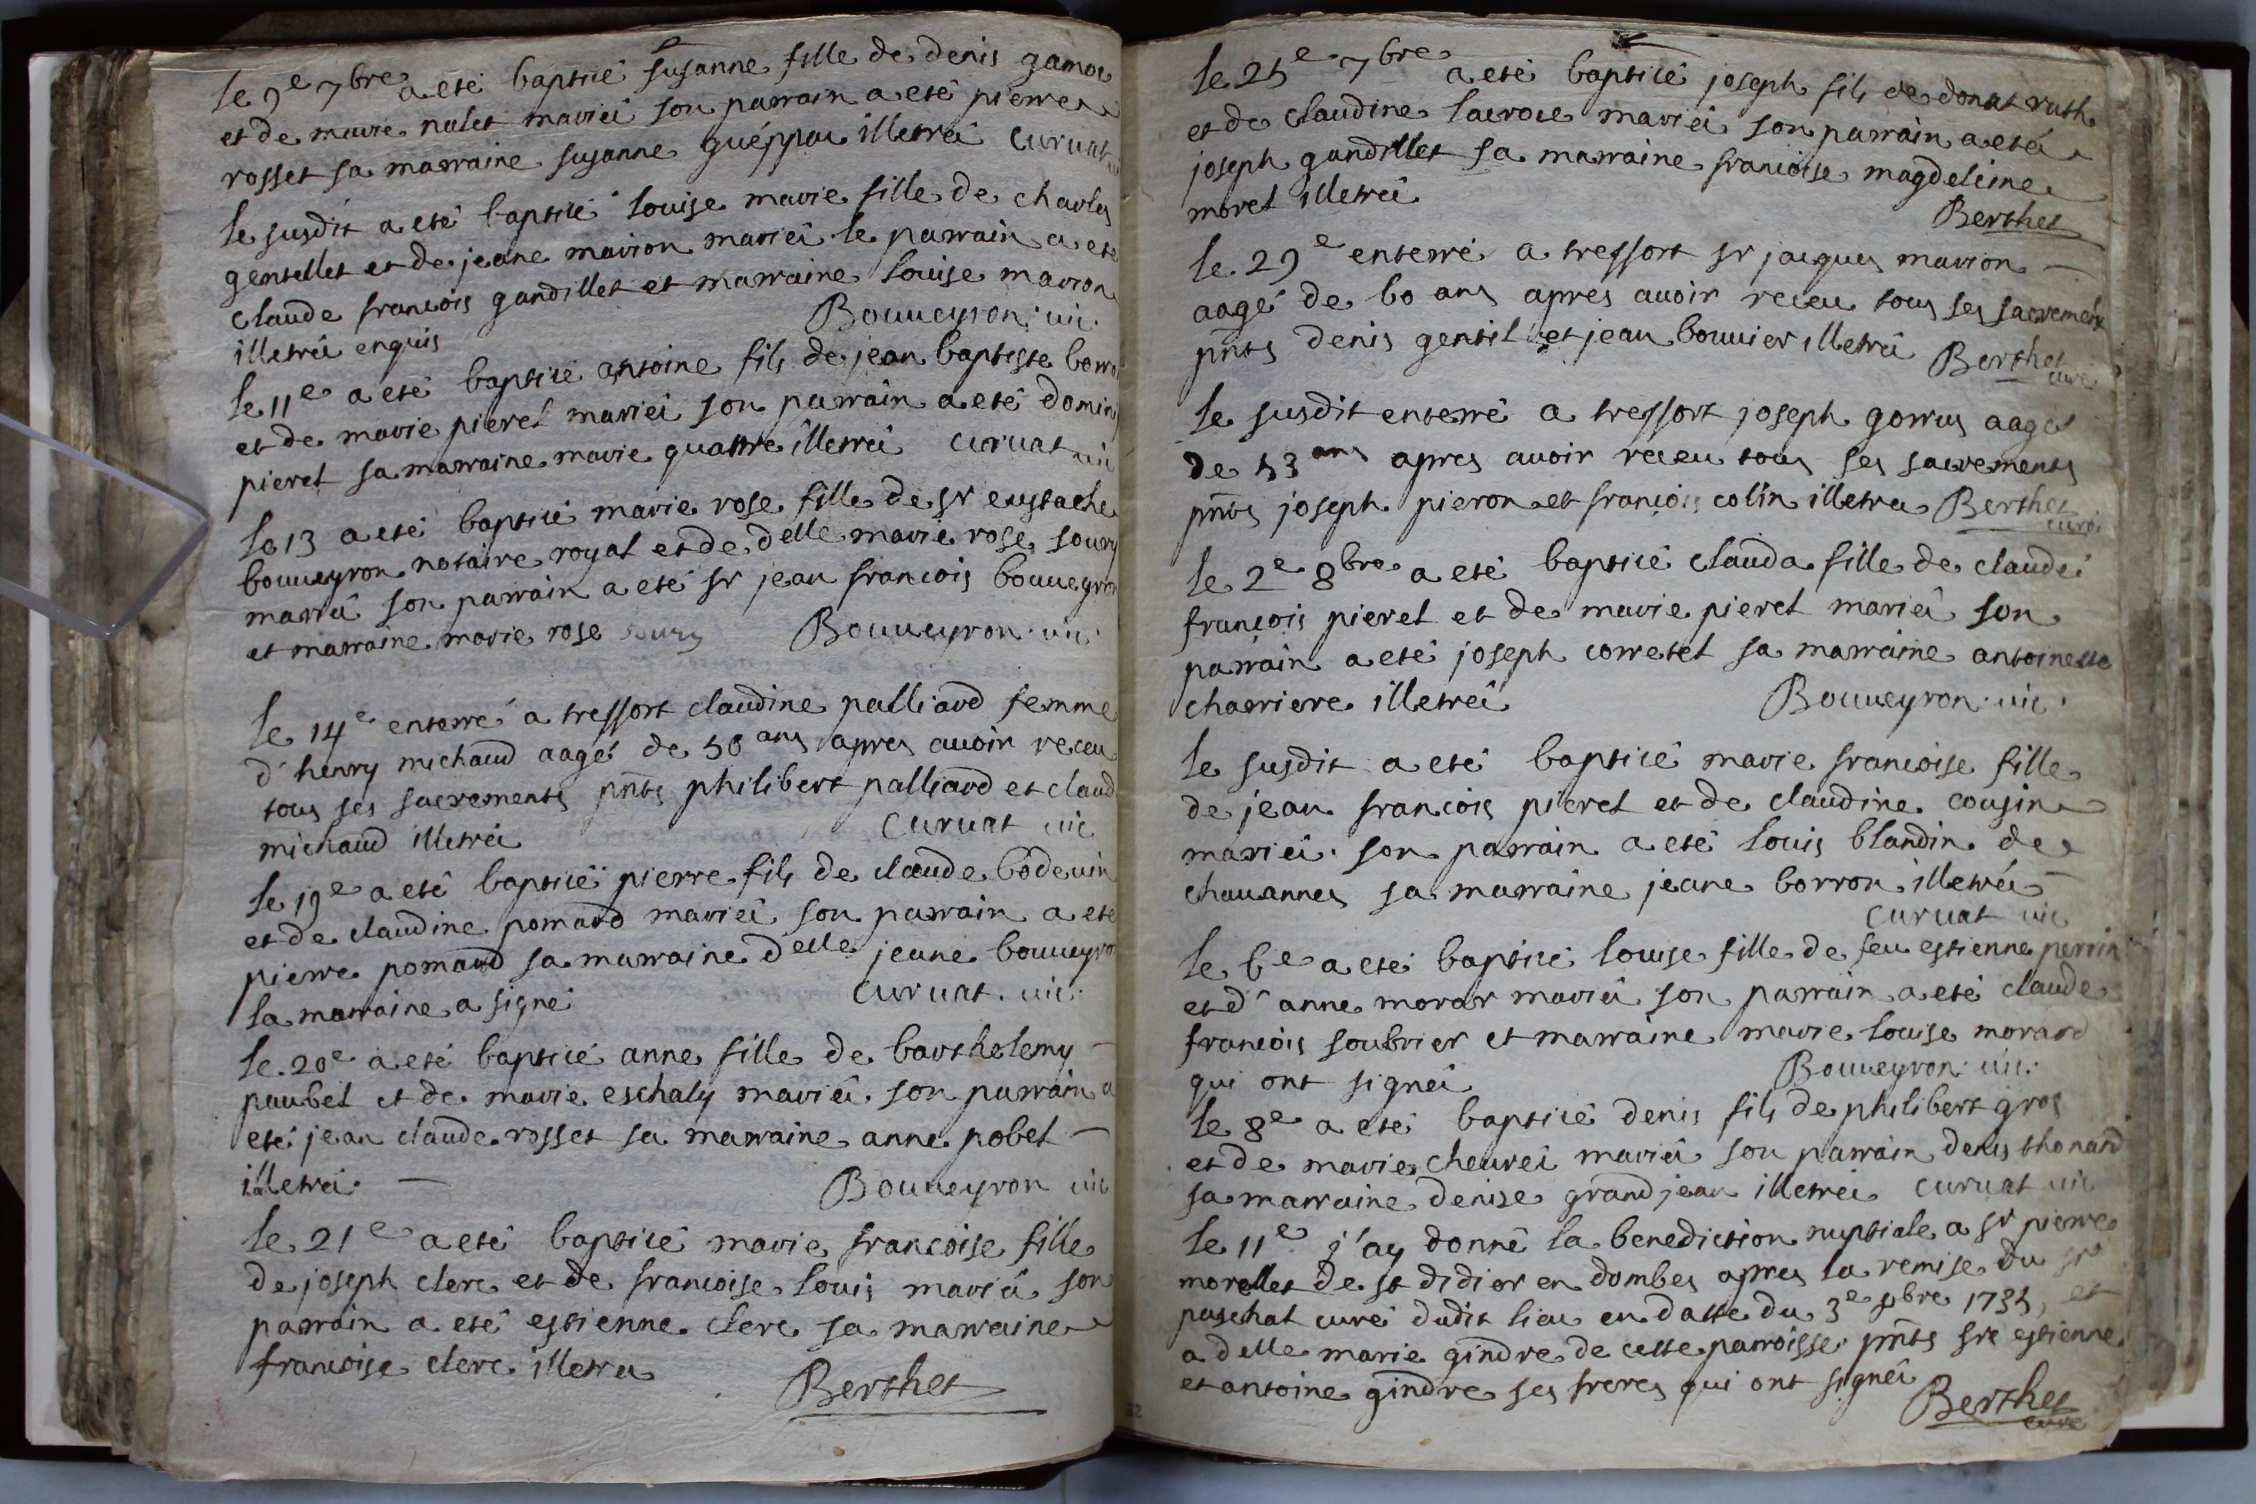 le 9e 7bre a eté bapticé susanne fille de denis gamoe
et de marie nalet mariéi son parrain a eté pierre
rosset sa marraine susanne guéppa illetréi curuat
le susdit a eté bapticé louise marie fille de charles
gentellet et de jeane mairon mariéi le parrain a eté
claude francois gandillet et marraine louise mairon
illetréi enquis Bouueyron uic.
le 11e a eté bapticé antoine fils de jean baptiste borro
et de marie pieret mariéi son parrain a eté domini
pieret sa marraine marie quattre illetréi curuat uic
le 13 a eté bapticé marie rose fille de sr eustache
bouueyron notaire royal et de delle marie rose soury
marréi son parrain a eté sr jean francois bouueyron
et marraine marie rose soury Bouueyron uic.
le 14e enterré a tressort claudine palliard femme
d'henry michaud aagé de 50 ans apres auoir receu
tous ses sacrements pnts philibert palliard et claud
michaud illetréi curuat uic
le 19e a eté bapticé pierre fils de claude bodeuin
et de claudine pomard mariéi son parrain a eté
pierre pomard sa marraine delle jeane bouueyro
la marraine a signé curuat uic.
le 20e a eté bapticé anne fille de barthelemy
paubel et de marie eschaly mariéi son parrain a
eté jean claude rosset sa marraine anne pobel
illetréi Bouueyron uic
le 21e a eté bapticé marie francoise fille
de joseph clerc et de francoise louis mariéi son
parrain a eté estienne clerc sa marraine
francoise clerc illetrei
Berthet
le 25e 7bre a eté bapticé joseph fils de donat ruth
et de claudine lacroie mariéi son parrain a eté
joseph gandillet sa marraine francoise magdeleine
moret illetréi
Berthet
le 29e enterré a tressort sr jacques mairon
aagé de 60 ans apres auoir receu tous ses sacrements
pnts denis gentil et jean bouuier illetréi Berthet
curé
le susdit enterré a tressort joseph gorrus aagé
de 53 ans apres auoir receu tous ses sacrements
pnts joseph pieron et françois colin illetrei Berthet
curé
le 2e 8bre a eté bapticé clauda fille de claude
françois pieret et de marie pieret mariéi son
parrain a eté joseph corretel sa marraine antoinette
charriere illetréi Bouueyron uic.
le susdit a eté bapticé marie francoise fille
de jean francois pieret et de claudine cousin
mariéi son parrain a eté louis blandin de
chauannes sa marraine jeane borron illetréi
curuat uic
le 6e a eté bapticé louise fille de feu estienne perrin
et d'anne morar mariéi son parrain a eté claude
francois soubrier et marraine marie louise morard
qui ont signéi Bouueyron uic.
le 8e a eté bapticé denis fils de philibert gros
et de marie cheurei mariéi son parrain denis thonard
sa marraine denise grand jean illetréi curuat uic
le 11e j'ay donné la benediction nuptiale a sr pierre
morellet de st didier en dombes apres la remise du sr
paschat curé dudit lieu en datte du 3e 8bre 1735, et
a delle marie gindre de cette parroisse pnts srs estienne
et antoine gindre ses freres qui ont signéi
Berthet
curé